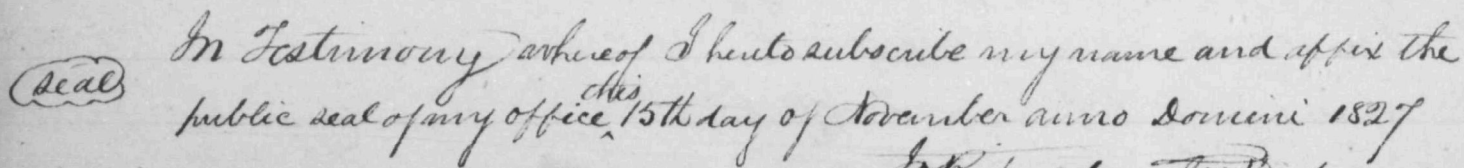 In Testimony whereof I hereto subscribe my name and affix the
seal
public seal of my office this 15th day of November anno Domini 1827